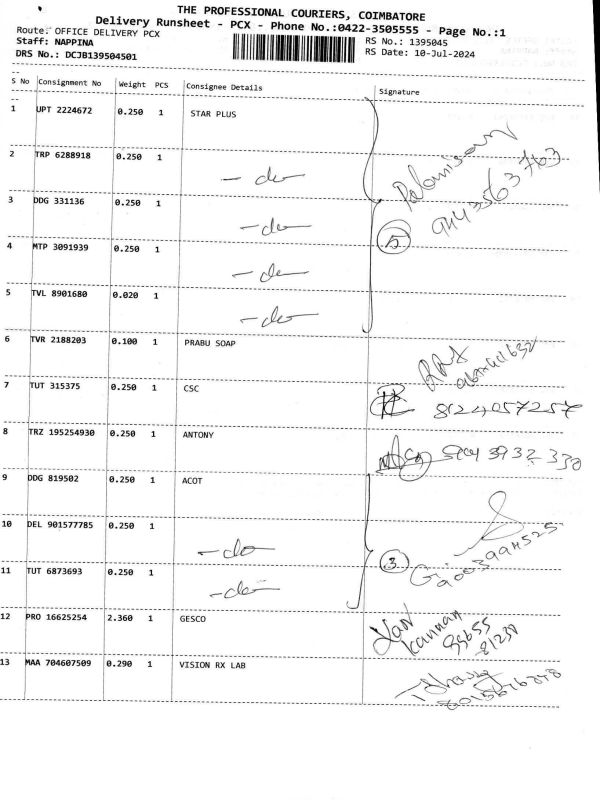 THE PROFESSIONAL COURIERS, COIMBATORE
Delivery Runsheet - PCX - Phone No.:0422-3505555 - Page No.:1
Route: OFFICE DELIVERY PCX
Staff: NAPPINA RS No.: 1395045
DRS No.: DCJB139504501 RS Date: 10-Jul-2024
S No Consignment No Weight PCS Consignee Details Signature
1 UPT 2224672 0.250 1 STAR PLUS
2 TRP 6288918 0.250 1 - do -
3 DDG 331136 0.250 1 - do -
5
4 MTP 3091939 0.250 1 - do -
5 TVL 8901680 0.020 1 - do -
6 TVR 2188203 0.100 1 PRABU SOAP
7 TUT 315375 0.250 1 CSC 8124057257
8 TRZ 195254930 0.250 1 ANTONY
9 DDG 819502 0.250 1 ACOT
10 DEL 901577785 0.250 1 - do -
3
11 TUT 6873693 0.250 1 - do -
12 PRO 16625254 2.360 1 GESCO
kannan
13 MAA 704607509 0.290 1 VISION RX LAB